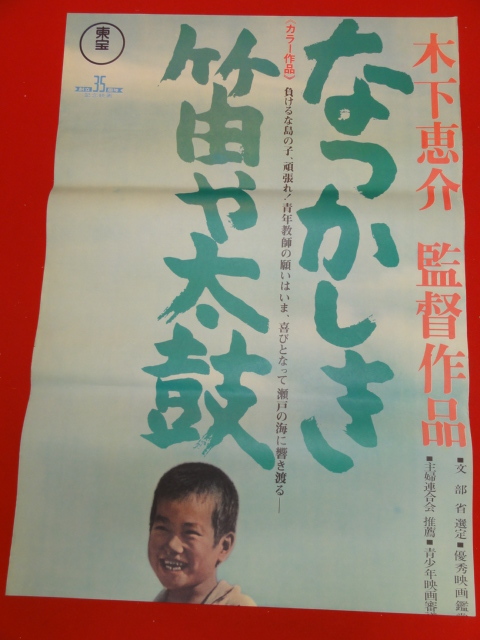 木下恵介 監督作品
■文部省選定■優秀映画鑑
■主婦連合会 推薦■青少年映画審
なつかしき
笛や太鼓
《カラー作品》
負けるな島の子、頑張れ!青年教師の願いはいま、喜びとなって瀬戸の海に響き渡る——
東宝
35